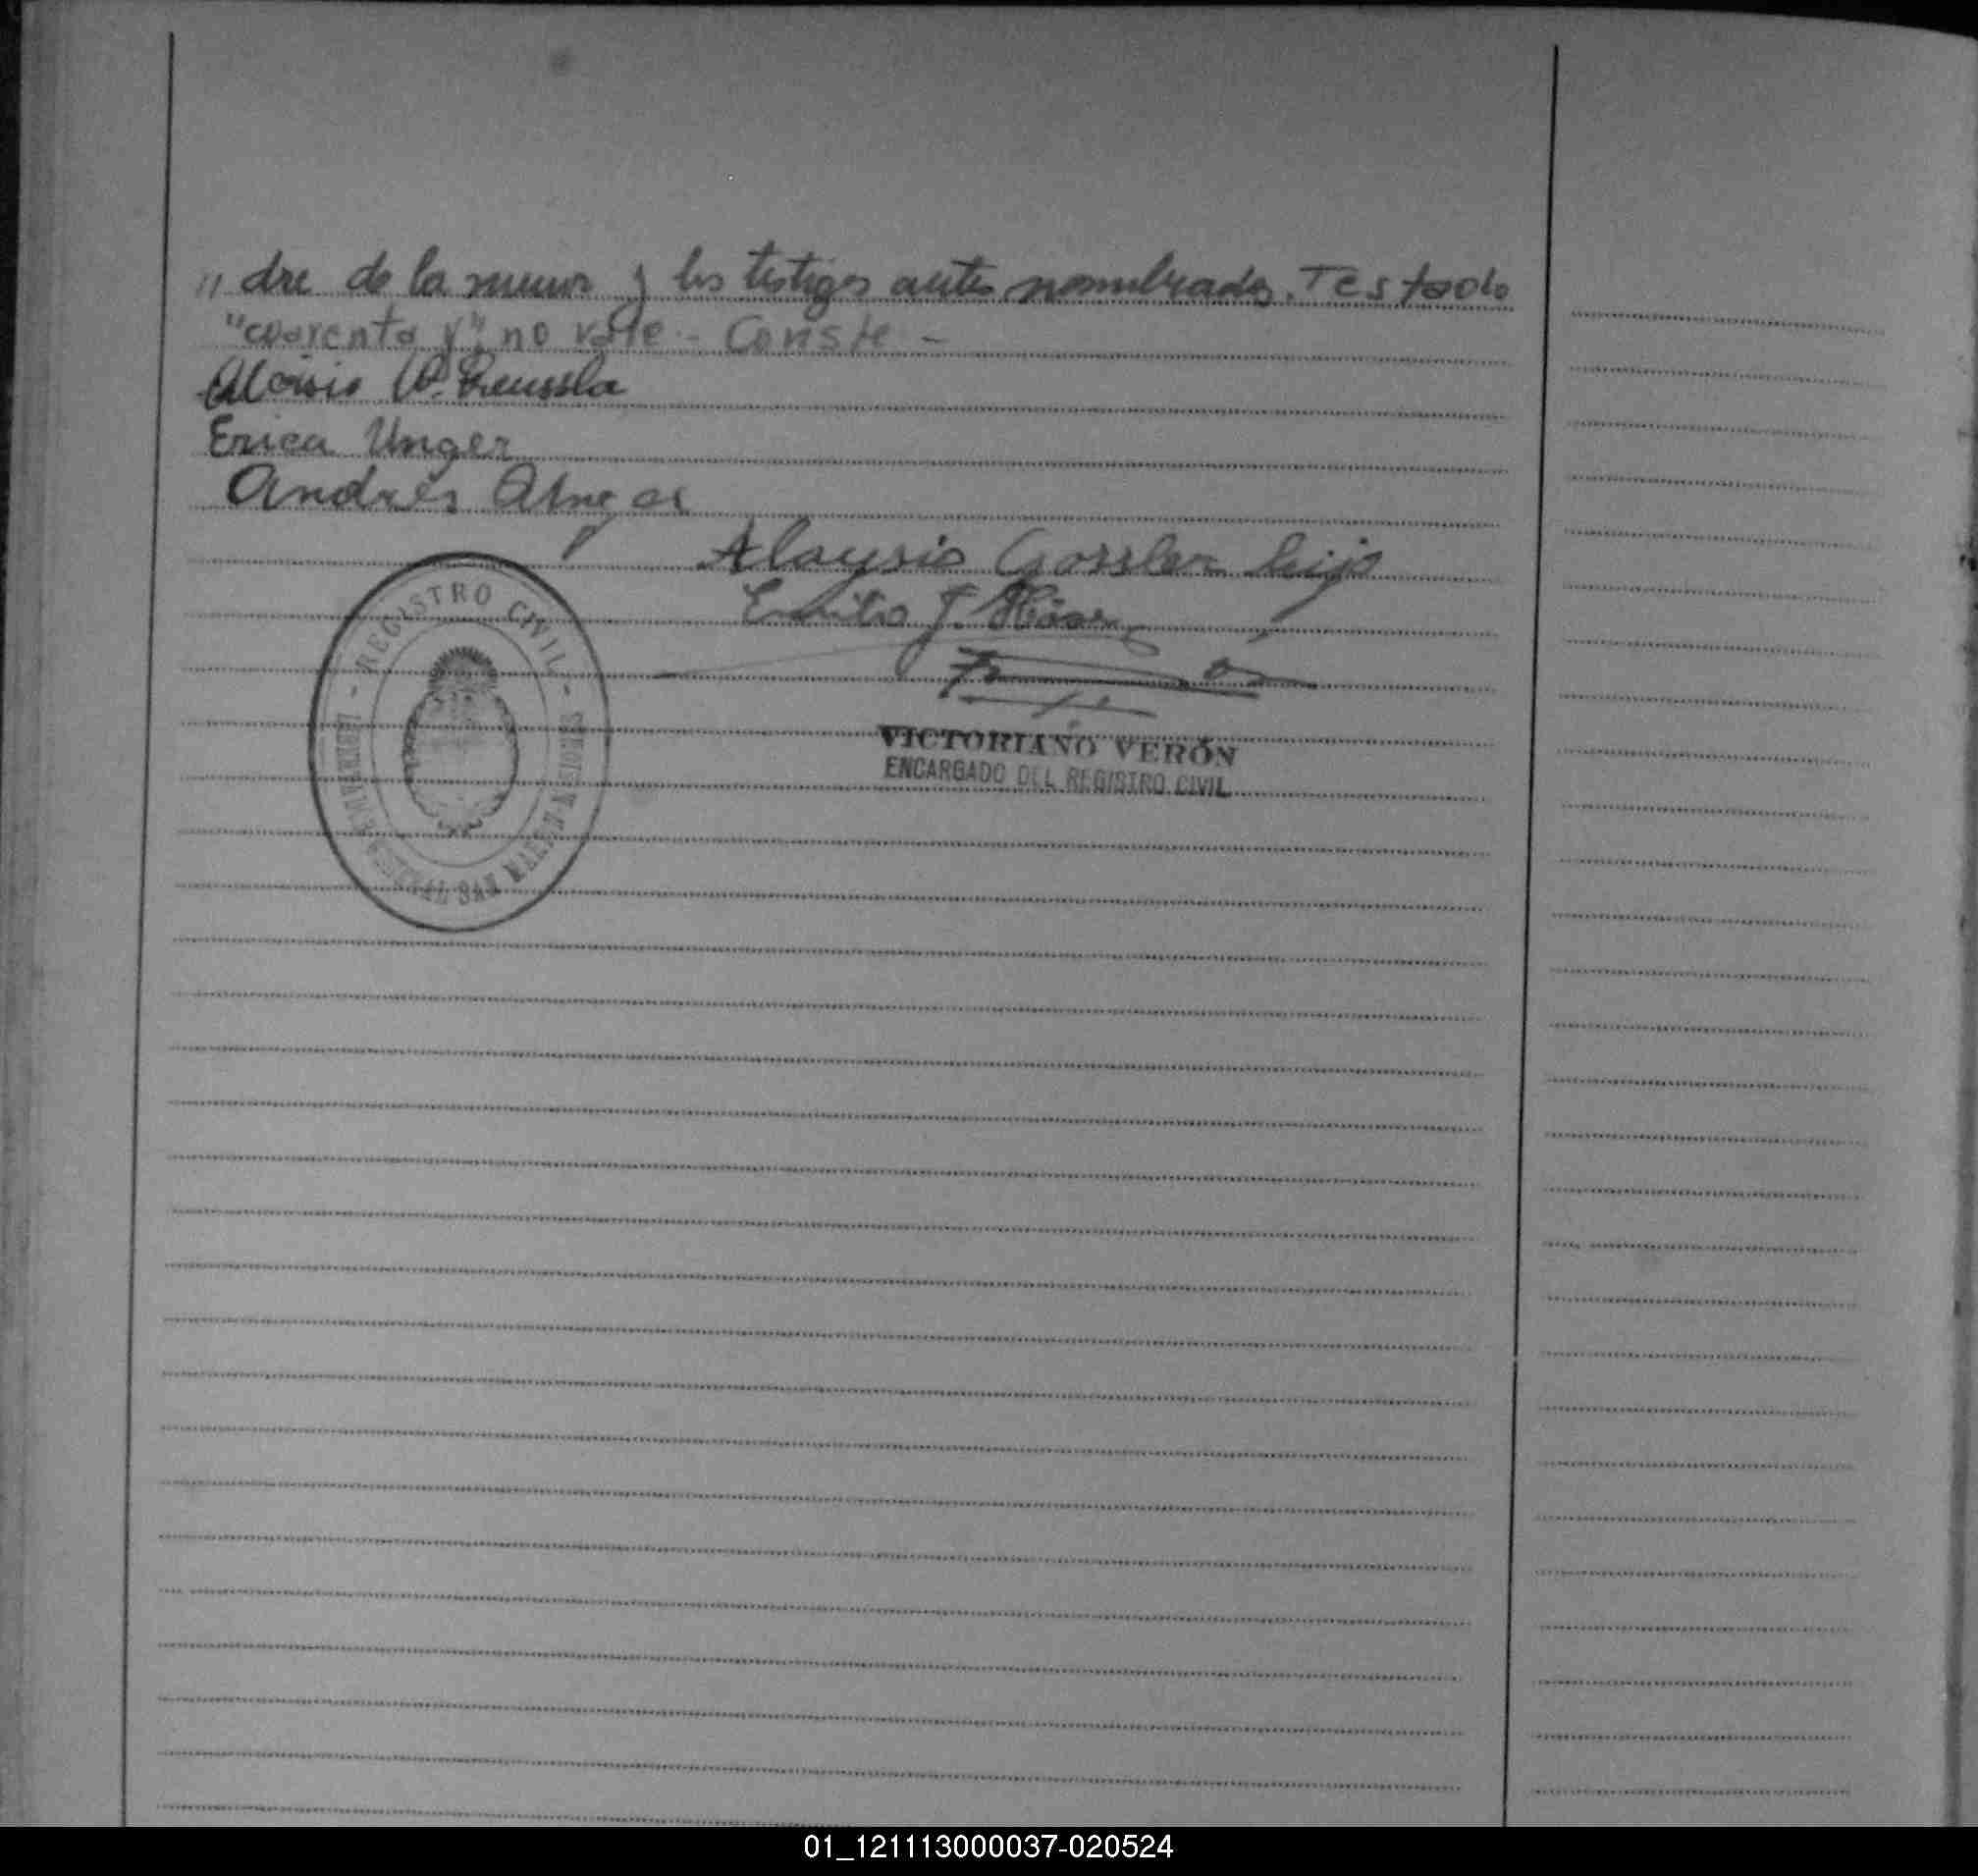 " dre de la menor y los testigos antes nombrados. Testado
"cuarenta y", no vale - Conste -
Aloisio
Erica Unger
Andrés
Aloysio Gossler hijo
Emilio J.
- REGISTRO CIVIL -
GENERAL SAN MARTIN
VICTORIANO VERÓN
ENCARGADO DEL REGISTRO CIVIL
01_121113000037-020524